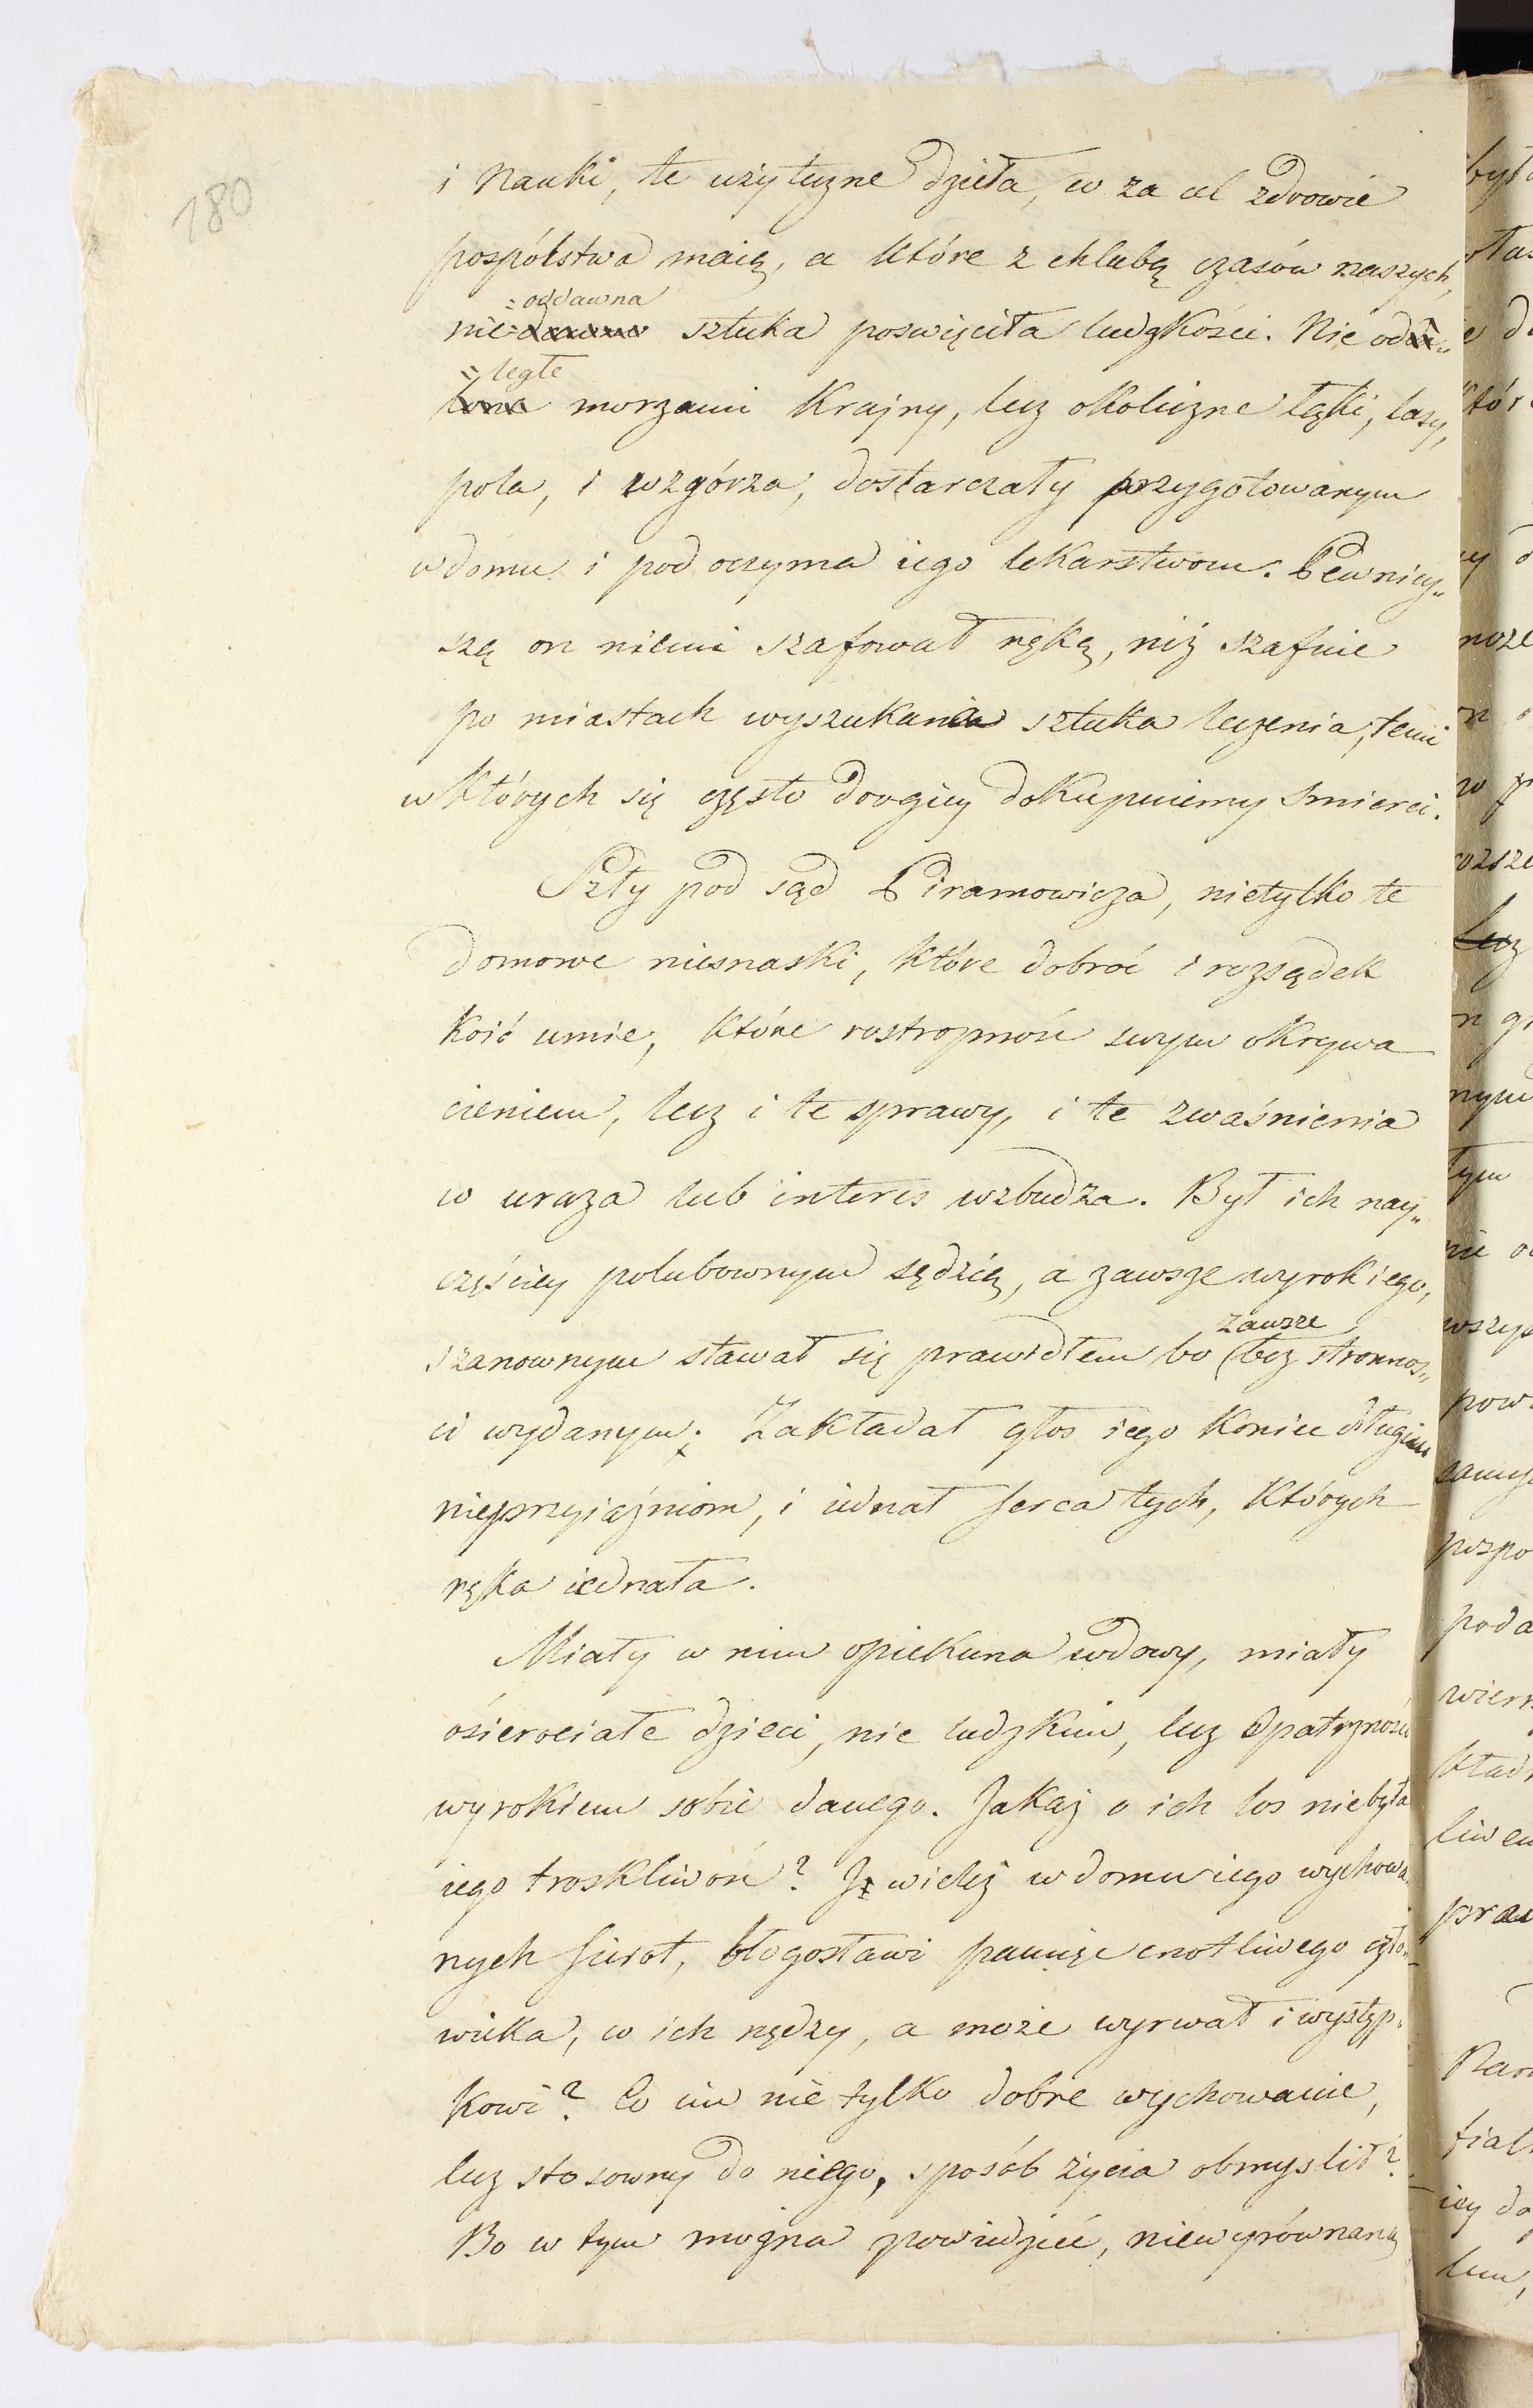 180
i Nauki, te użyteczne dzieła, co za cel zdrowie
pospólstwa maią, a które z chlubą czasów naszych,
=oddawna
nie sztuka poswięciła ludzkości. Nie od„
=ległe
morzami Krajny, lecz okoliczne łąki, lasy,
pola, i wzgórza, dostarczały przygotowanym
w domu i pod oczyma iego lekarstwom. Pewniey„
szą on niemi szafował ręką, niż szafuie
po miastach wyszukana sztuka leczenia, temi
w których się często drogiey dokupuiemy smierci.
Szły pod sąd Piramowicza, nietylko te
domowe niesnaski, które dobroć i rozsądek
koić umie, które rostropność swym okrywa
cieniem, lecz i te sprawy, i te zwaśnienia
co uraza lub interes wzbudza. Był ich nay„
częściey polubownym sędzią, a zawsze wyrok iego,
zawsze
szanownym stawał się prawidłem bo bez stronnoś„
ci wydanym; Zakładał głos iego koniec długim
nieprzyiaźniom, i iednał serca tych, których
ręka iednała.
Miały w nim opiekuna wdowy, miały
ósierociałe dzieci, nie ludzkim, lecz Opatrzności
wyrokiem sobie danego. Jakaż o ich los niebyła
iego troskliwość? Iż wieleż w domu iego wychowa„
nych sierot, błogosławi pamięć cnotliwego czło„
wieka, co ich nędzy, a może wyrwał i występ„
kowi? Co im nie tylko dobre wychowanie,
lecz stosowny do niego, sposób życia obmyslił?
Bo w tym można powiedzieć, niewyrównaną